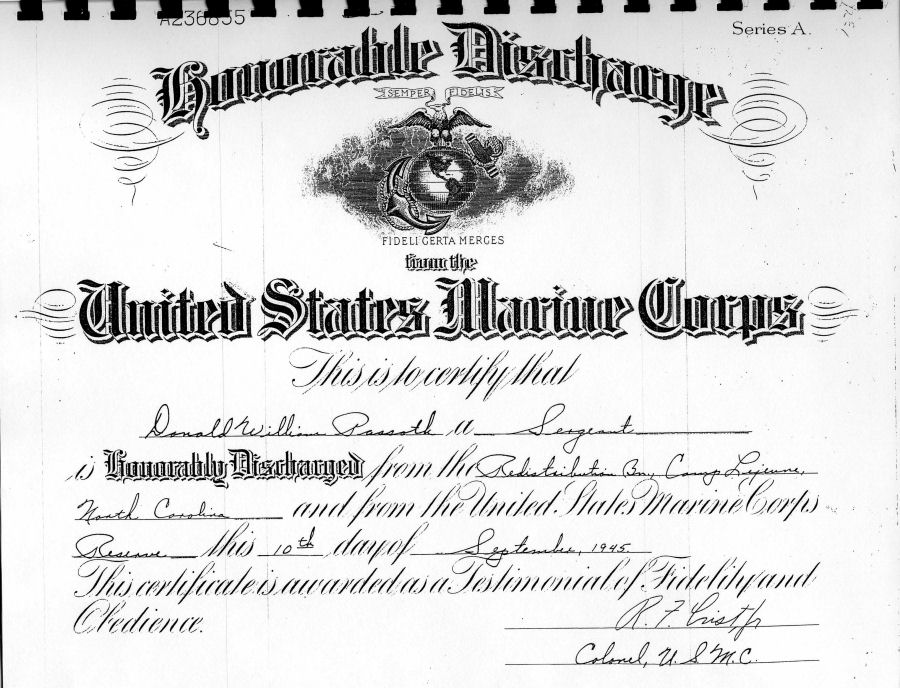 A236835
Series A.
Honorable Discharge
SEMPER FIDELIS
FIDELI CERTA MERCES
from the
United States Marine Corps
This is to certify that
Donald William Passoth a Sergeant
is Honorably Discharged from the Redistribution Bn, Camp Lejeune,
North Carolina and from the United States Marine Corps
Reserve this 10th day of September, 1945
This certificate is awarded as a Testimonial of Fidelity and
Obedience.
R. F. Crist Jr
Colonel, U.S.M.C.